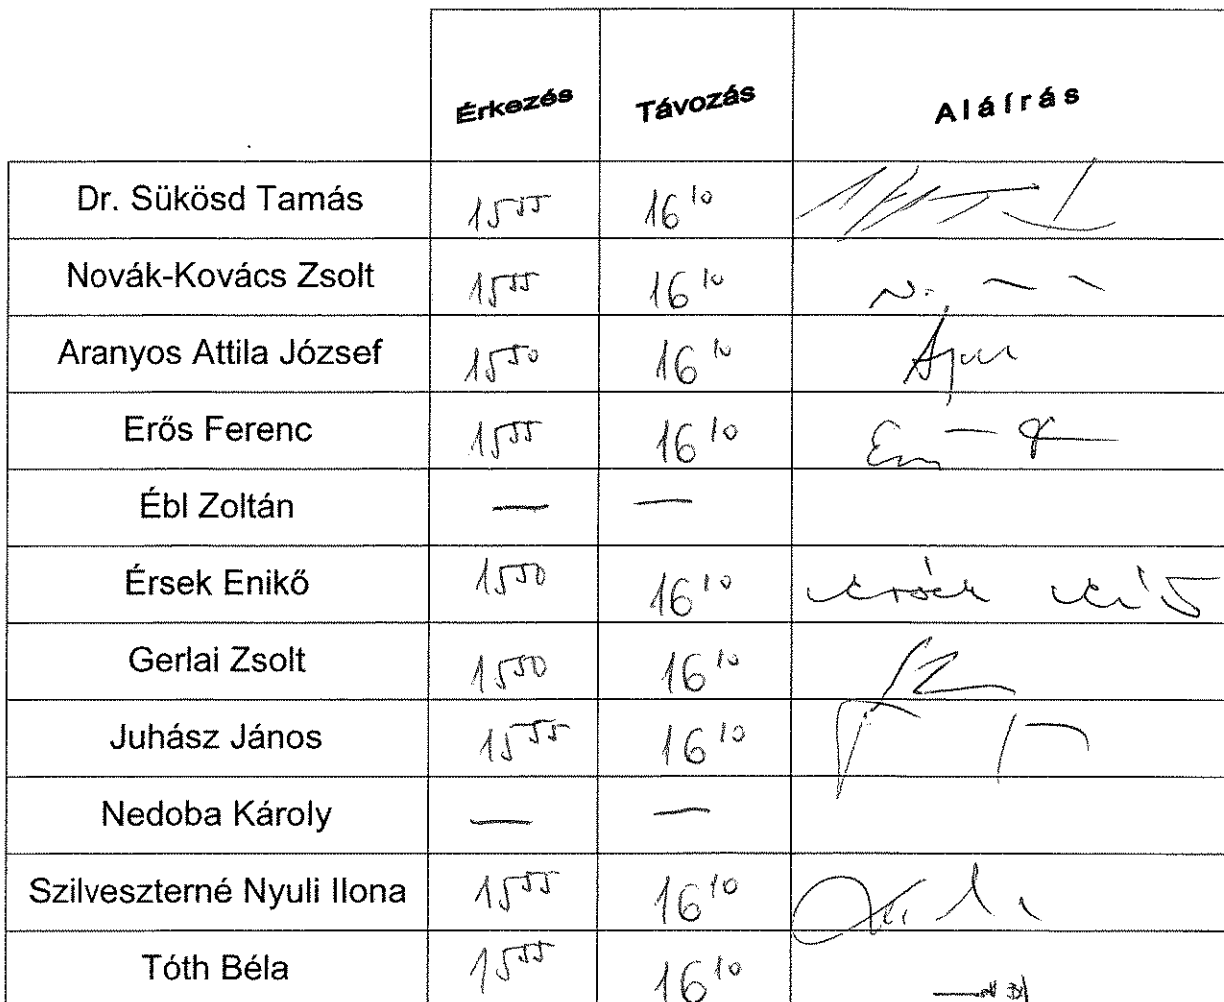 Érkezés Távozás Aláírás
Dr. Sükösd Tamás 15⁵⁵ 16¹⁰
Novák-Kovács Zsolt 15⁵⁵ 16¹⁰
Aranyos Attila József 15⁵⁰ 16¹⁰
Erős Ferenc 15⁵⁵ 16¹⁰
Ébl Zoltán — —
Érsek Enikő 15⁵⁰ 16¹⁰
Gerlai Zsolt 15⁵⁰ 16¹⁰
Juhász János 15⁵⁵ 16¹⁰
Nedoba Károly — —
Szilveszterné Nyuli Ilona 15⁵⁵ 16¹⁰
Tóth Béla 15⁵⁵ 16¹⁰